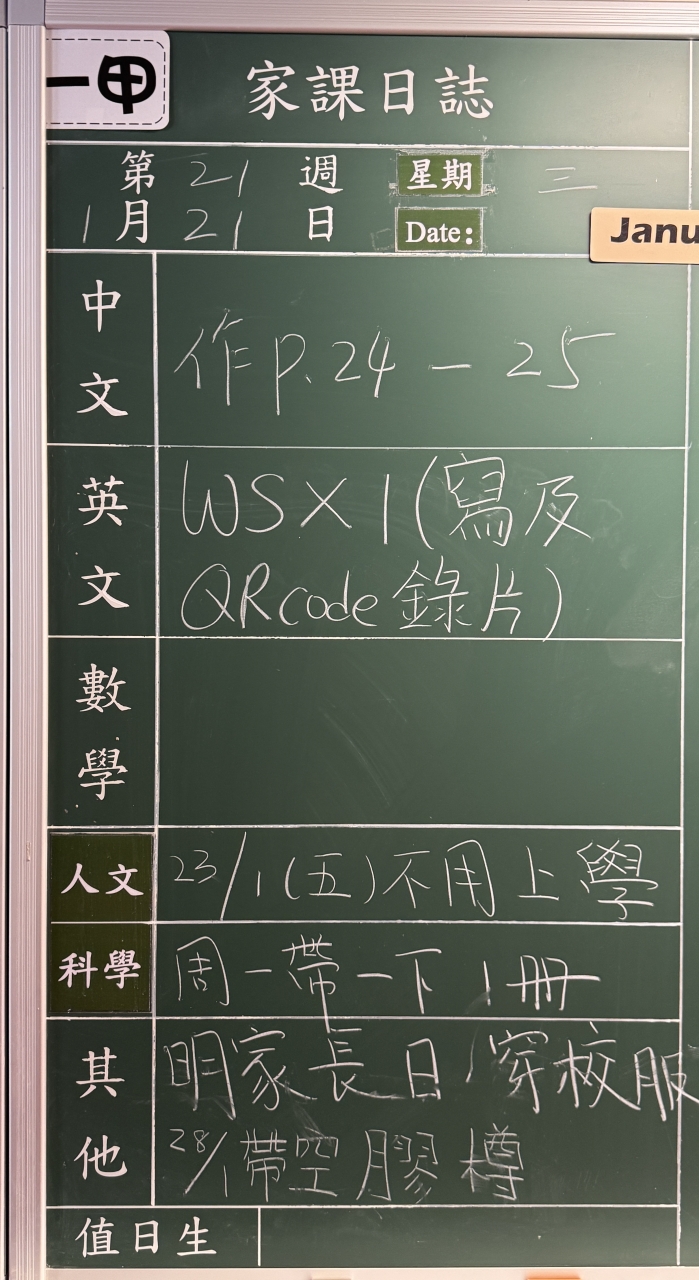 一甲
家課日誌
第 21 週 星期 三
1月 21 日 Date:
Janu
中文
作 P.24 – 25
英文
WS×1 (寫及
QR code 錄片)
數學
人文
23/1 (五) 不用上學
科學
周一帶一下 1冊
其他
明家長日,穿校服
28/1帶空膠樽
值日生